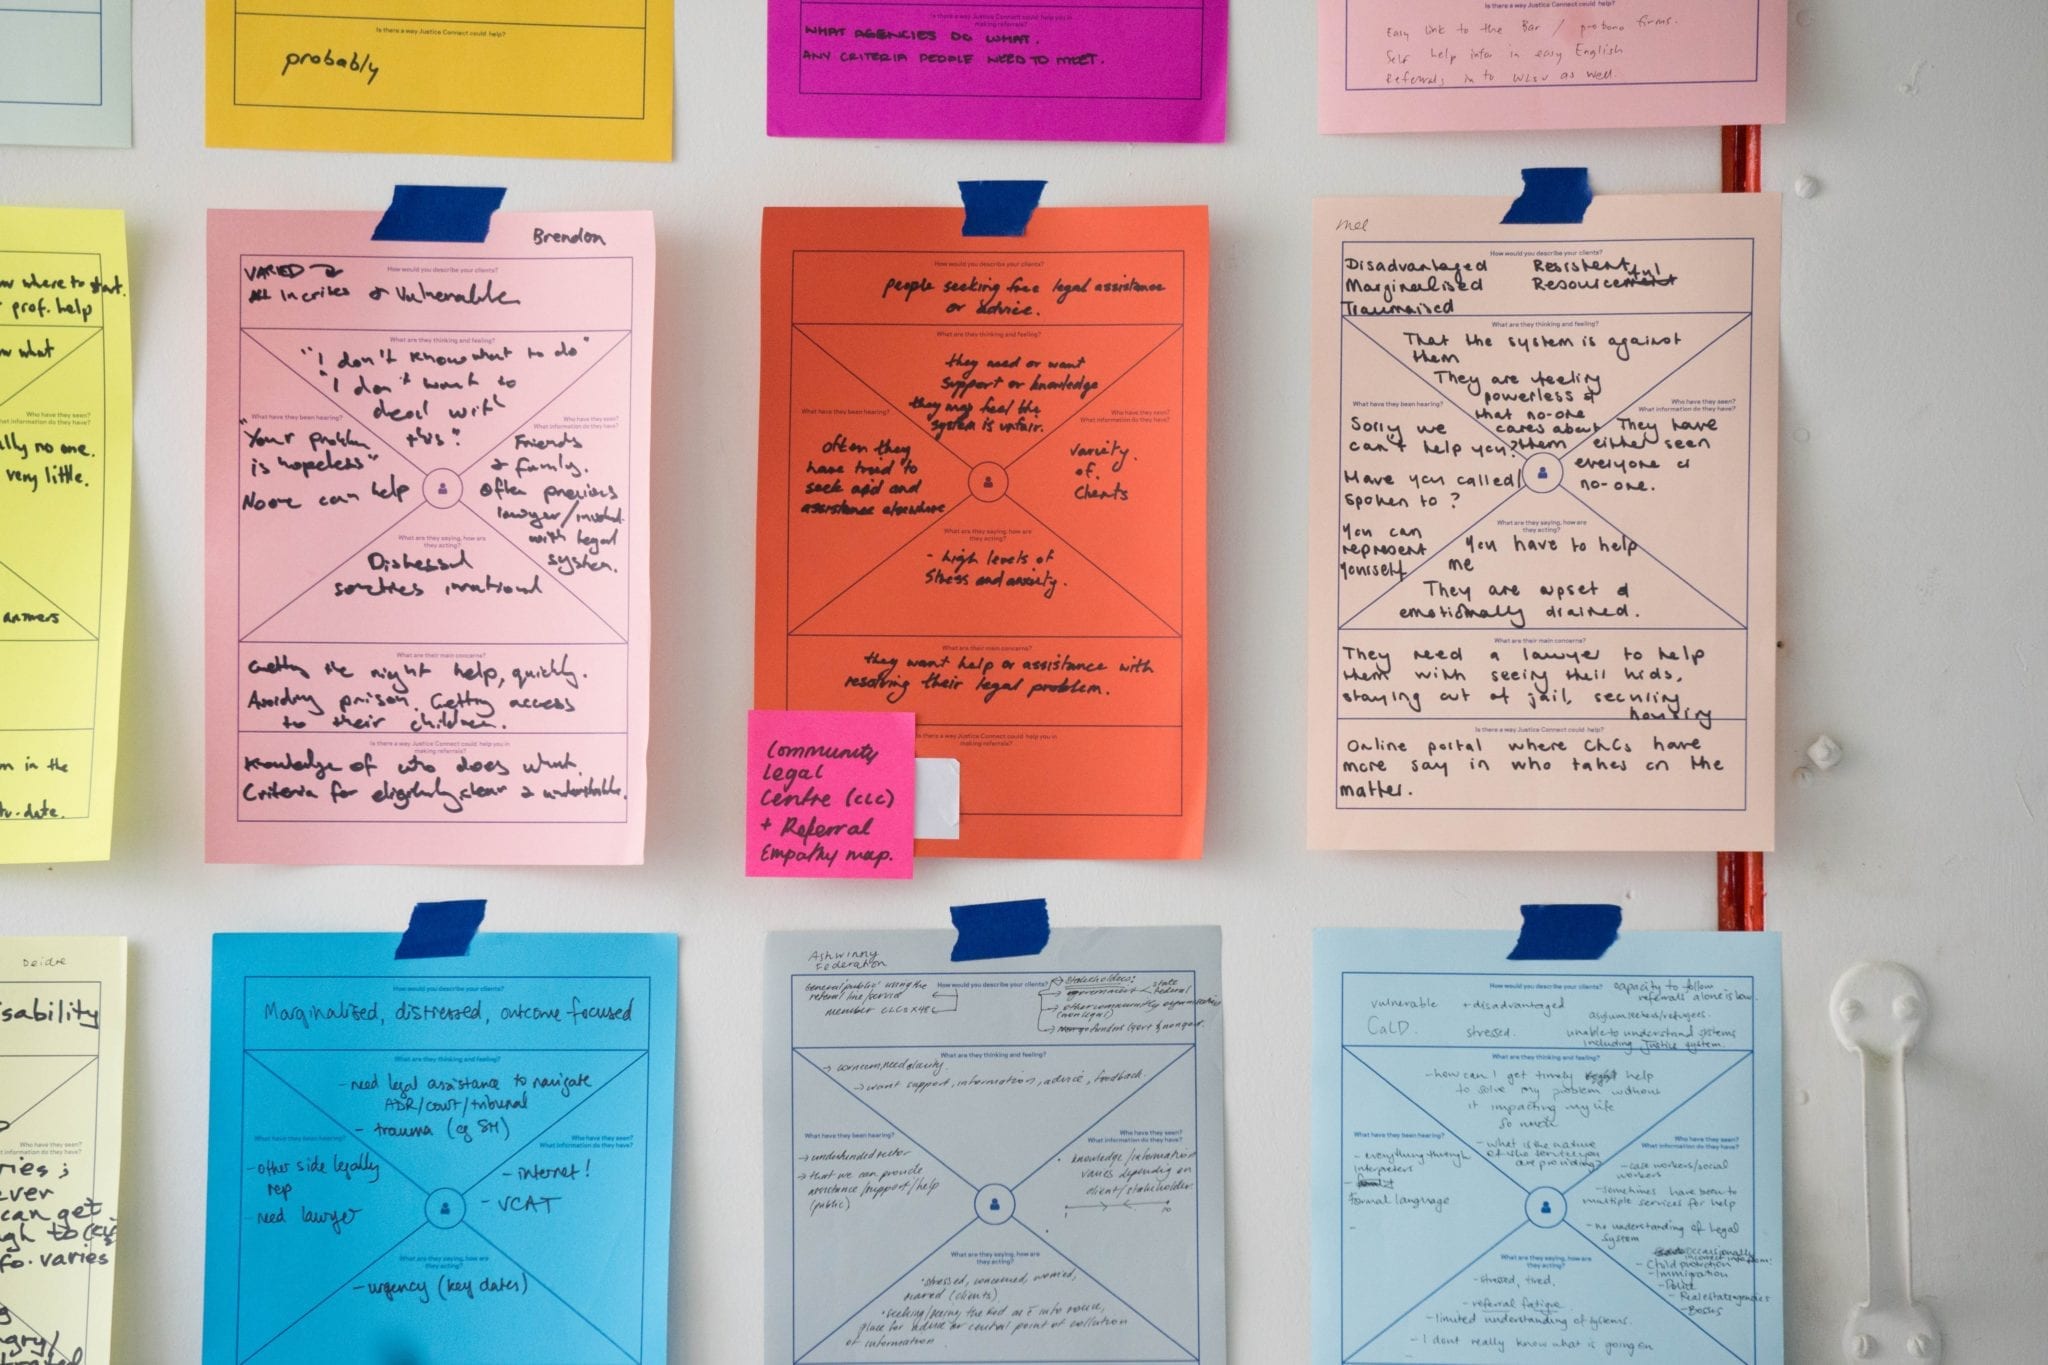 Is there a way Justice Connect could help?
probably
Is there a way Justice Connect could help you in
making referrals?
WHAT AGENCIES DO WHAT.
ANY CRITERIA PEOPLE NEED TO MEET.
Is there a way Justice Connect could help?
Easy link to the Bar / probono firms.
Self help infor in easy English
Referrals in to WLSV as well.
ow where to start.
prof. help
ow what
ally no one.
very little.
answers
m in the
date.
Brendon
How would you describe your clients?
VARIED
All in crises & Vulnerable
What are they thinking and feeling?
"I don't know what to do"
"I don't want to
deal with
this"
What have they been hearing?
"Your problem
is hopeless"
No one can help
Who have they seen?
What information do they have?
Friends
& family.
Often previous
lawyer/
with legal
system.
What are they saying, how are
they acting?
Distressed
sometimes irrational
What are their main concerns?
Getting the right help, quickly.
Avoiding prison. Getting access
to their children.
Is there a way Justice Connect could help you in
making referrals?
Knowledge of who does what.
Criteria for eligibility clear & understandable.
How would you describe your clients?
people seeking free legal assistance
or advice.
What are they thinking and feeling?
they need or want
support or knowledge
they may feel the
system is unfair.
What have they been hearing?
often they
have tried to
seek aid and
assistance elsewhere
Who have they seen?
What information do they have?
Variety
of
Clients
What are they saying, how are
they acting?
- high levels of
stress and anxiety.
What are their main concerns?
they want help or assistance with
resolving their legal problem.
Is there a way Justice Connect could help you in
making referrals?
Community
Legal
Centre (CLC)
+ Referral
Empathy map.
Mel
How would you describe your clients?
Disadvantaged Resistent
Marginalised Resourceful
Traumatised
What are they thinking and feeling?
That the system is against
them
They are feeling
powerless &
that no-one
cares about
them
What have they been hearing?
Sorry we
can't help you?
Have you called/
spoken to?
You can
represent
yourself
Who have they seen?
What information do they have?
They have
either seen
everyone or
no-one.
What are they saying, how are
they acting?
You have to help
me
They are upset &
emotionally drained.
What are their main concerns?
They need a lawyer to help
them with seeing their kids,
staying out of jail, securing
housing
Is there a way Justice Connect could help?
Online portal where CLCs have
more say in who takes on the
matter.
Deidre
sability
Who have they seen?
do they have?
ries;
ever
can get
gh to
fo. varies
ngry/
How would you describe your clients?
Marginalised, distressed, outcome focused
What are they thinking and feeling?
- need legal assistance to navigate
ADR/court/tribunal
- trauma (eg SH)
What have they been hearing?
- other side legally
rep
- need lawyer
Who have they seen?
What information do they have?
- internet!
- VCAT
What are they saying, how are
they acting?
- urgency (key dates)
Ashwinny
Federation
How would you describe your clients?
'General public' using the
referral line/service
member CLCs
Stakeholders:
government
state
federal
other community organisations
(non legal)
What are they thinking and feeling?
→ concern, need clarity.
→ want support, information, advice, feedback.
What have they been hearing?
→ underfunded sector
→ that we can provide
assistance/support/help
(public)
Who have they seen?
What information do they have?
knowledge/information
varies depending on
client/stakeholder.
1 10
What are they saying, how are
they acting?
• stressed, concerned, worried,
scared (clients)
• seeking/seeing the Fed as
place for advice or central point of collation
of information
How would you describe your clients?
vulnerable + disadvantaged
CaLD. stressed.
capacity to follow
referrals alone is low.
asylum seekers/refugees.
unable to understand systems
including justice system.
What are they thinking and feeling?
- how can I get timely help
to solve my problem without
it impacting my life
so much
- what is the nature
of the service you
are providing?
What have they been hearing?
- everything through
interpreters
formal language
Who have they seen?
What information do they have?
- case workers/social
workers
- sometimes have been to
multiple services for help
- no understanding of legal
system
occasionally
incorrect info from:
- Child protection
- Immigration
- Police
- Real estate agencies
- Bosses
What are they saying, how are
they acting?
- stressed, tired,
- referral fatigue.
- limited understanding of systems.
- I dont really know what is going on